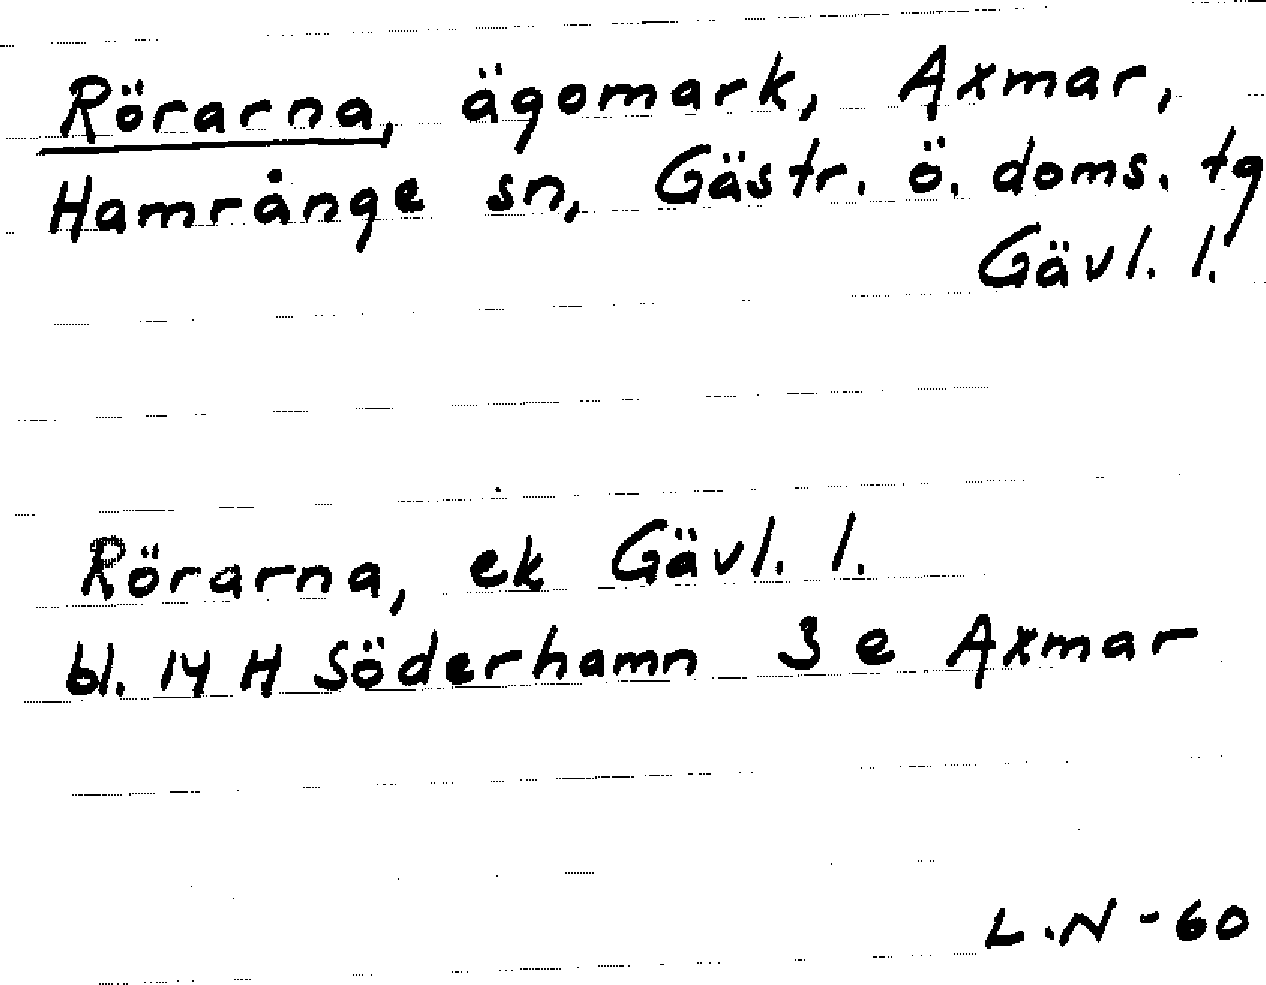 Rörarna, ägomark, Axmar,
Hamrånge sn, Gästr. ö. doms. tg
Gävl. l.
Rörarna, ek Gävl. l.
bl. 14 H Söderhamn 3 e Axmar
L.N -60